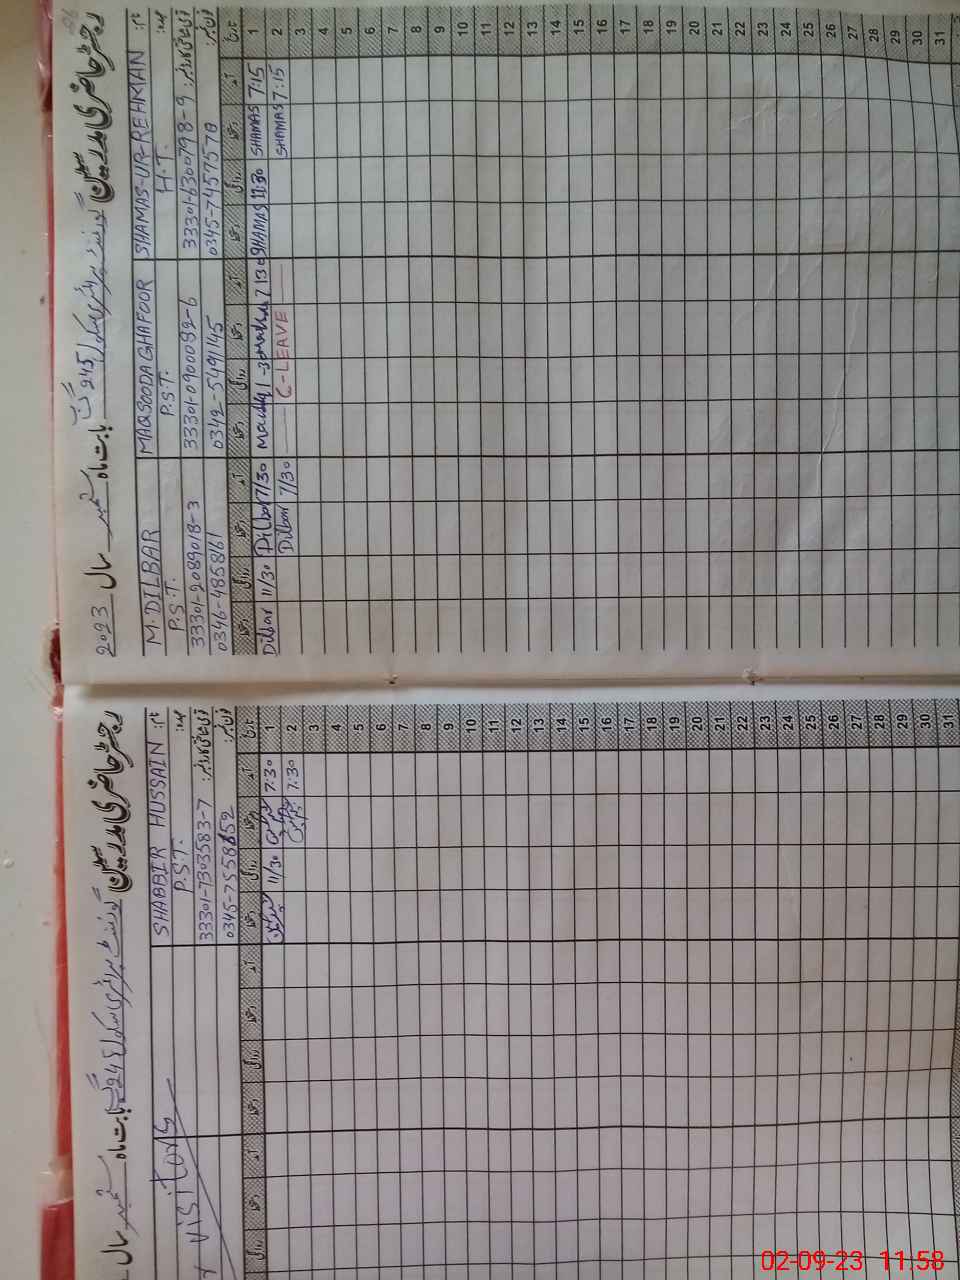 رجسٹر حاضری مدرسین گورنمنٹ پرائمری سکول 245 گ ب بابت ماہ ستمبر سال 2023
نام: SHAMAS-UR-REHMAN MAQSOODA GHAFOOR M. DILBAR
عہدہ: H.T. P.S.T. P.S.T.
قومی شناختی کارڈ نمبر: 33301-6300798-9 33301-0900092-6 33301-2089018-3
فون نمبر: 0345-7457578 0342-5491145 0346-485861
تاریخ آمد دستخط روانگی دستخط آمد دستخط روانگی دستخط آمد دستخط روانگی دستخط
1 7:15 SHAMAS 11:30 SHAMAS 7 130 7/30 Dilbar 11/30 Dilbar
2 7:15 SHAMAS C-LEAVE 7/30 Dilbar
3
4
5
6
7
8
9
10
11
12
13
14
15
16
17
18
19
20
21
22
23
24
25
26
27
28
29
30
31
رجسٹر حاضری مدرسین گورنمنٹ پرائمری سکول 245 گ ب بابت ماہ ستمبر سال
نام: SHABBIR HUSSAIN
عہدہ: P.S.T.
قومی شناختی کارڈ نمبر: 33301-7303583-7
فون نمبر: 0345-7558652
Visitors
تاریخ آمد دستخط روانگی دستخط آمد دستخط روانگی دستخط آمد دستخط روانگی
1 7:30 11/30
2 7:30
3
4
5
6
7
8
9
10
11
12
13
14
15
16
17
18
19
20
21
22
23
24
25
26
27
28
29
30
31
02-09-23 11:58